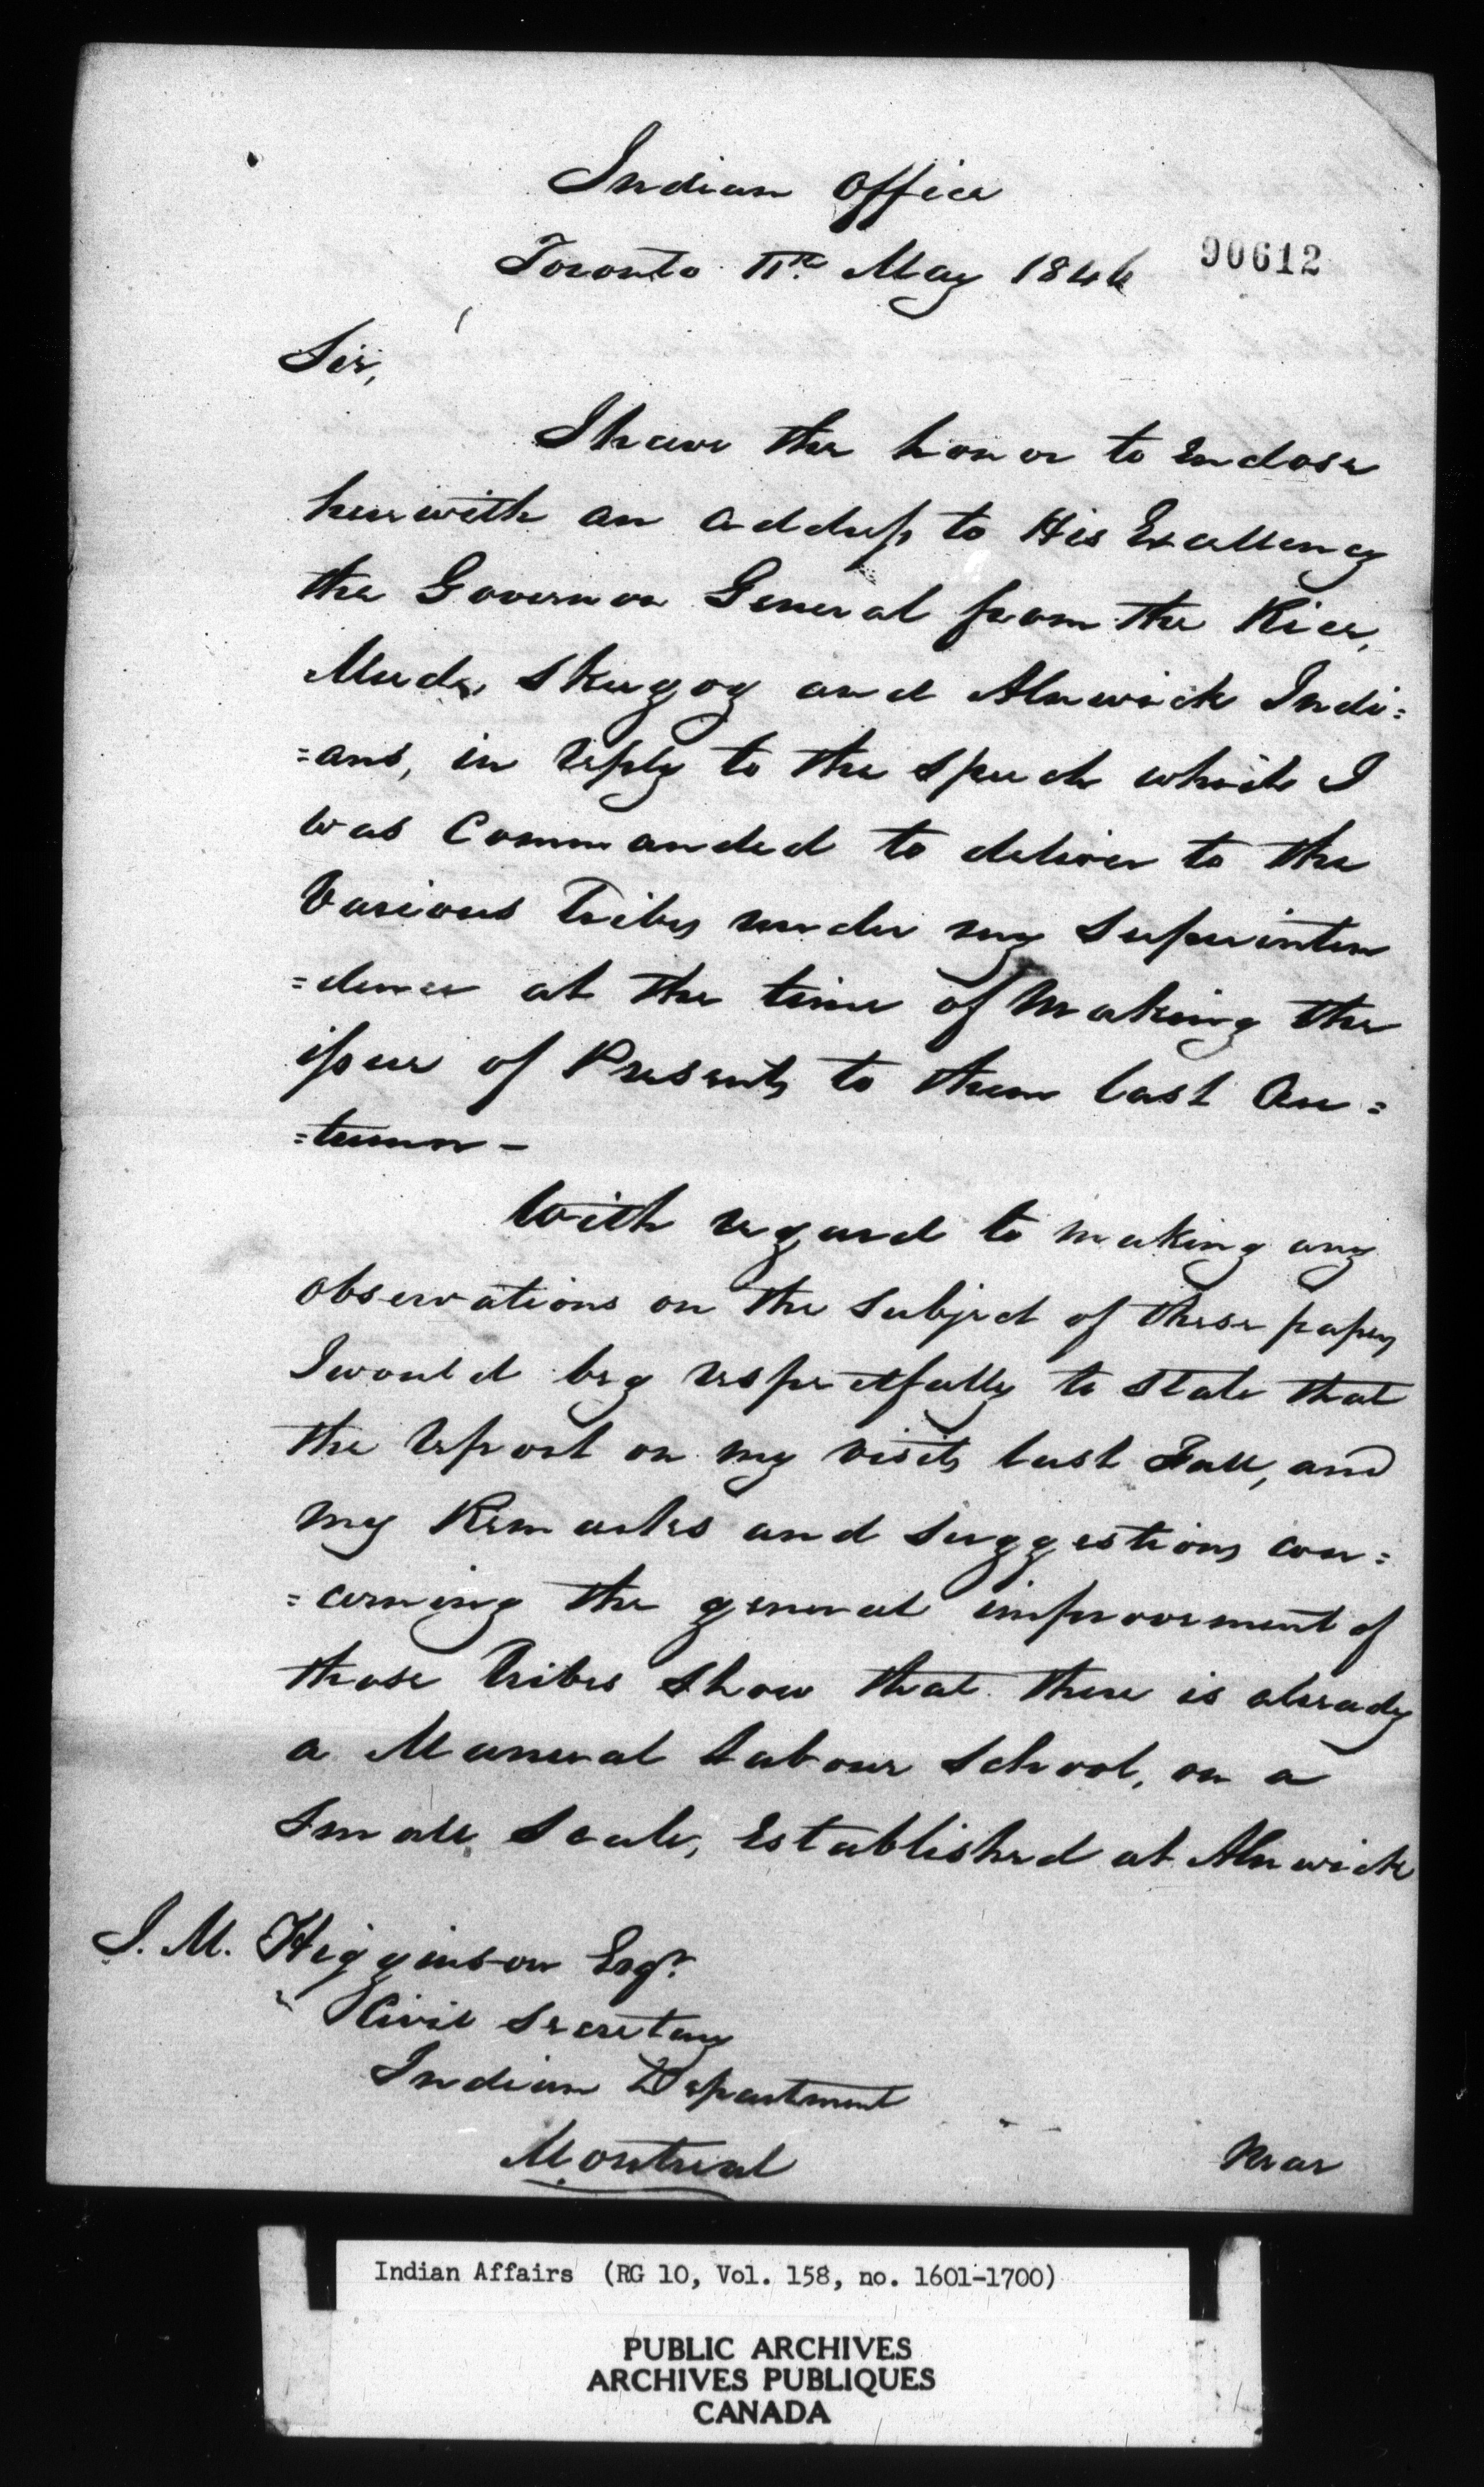 Indian Office
Toronto 11th May 1846
90612
Sir,
I have the honor to Enclose
herewith an address to His Excellency
the Governor General from the Rice,
Mud, Skugog and Alnwick Indi=
=ans, in reply to the speech which I
was Commanded to deliver to the
Various Tribes under my Superinten
=dence at the time of Making the
issue of Presents to them last Au=
=tumn -
With regard to making any
observations on the Subject of these papers
I would beg respectfully to State that
the report on my visits last Fall, and
my Remarks and Suggestions con=
=cerning the general improvement of
those Tribes Show that there is already
a Manual Labour School, on a
Small Scale, Established at Alnwick
J. M. Higginson Esqr.
Civil Secretary
Indian Department
Montreal
near
Indian Affairs (RG 10, Vol. 158, no. 1601-1700)
PUBLIC ARCHIVES
ARCHIVES PUBLIQUES
CANADA